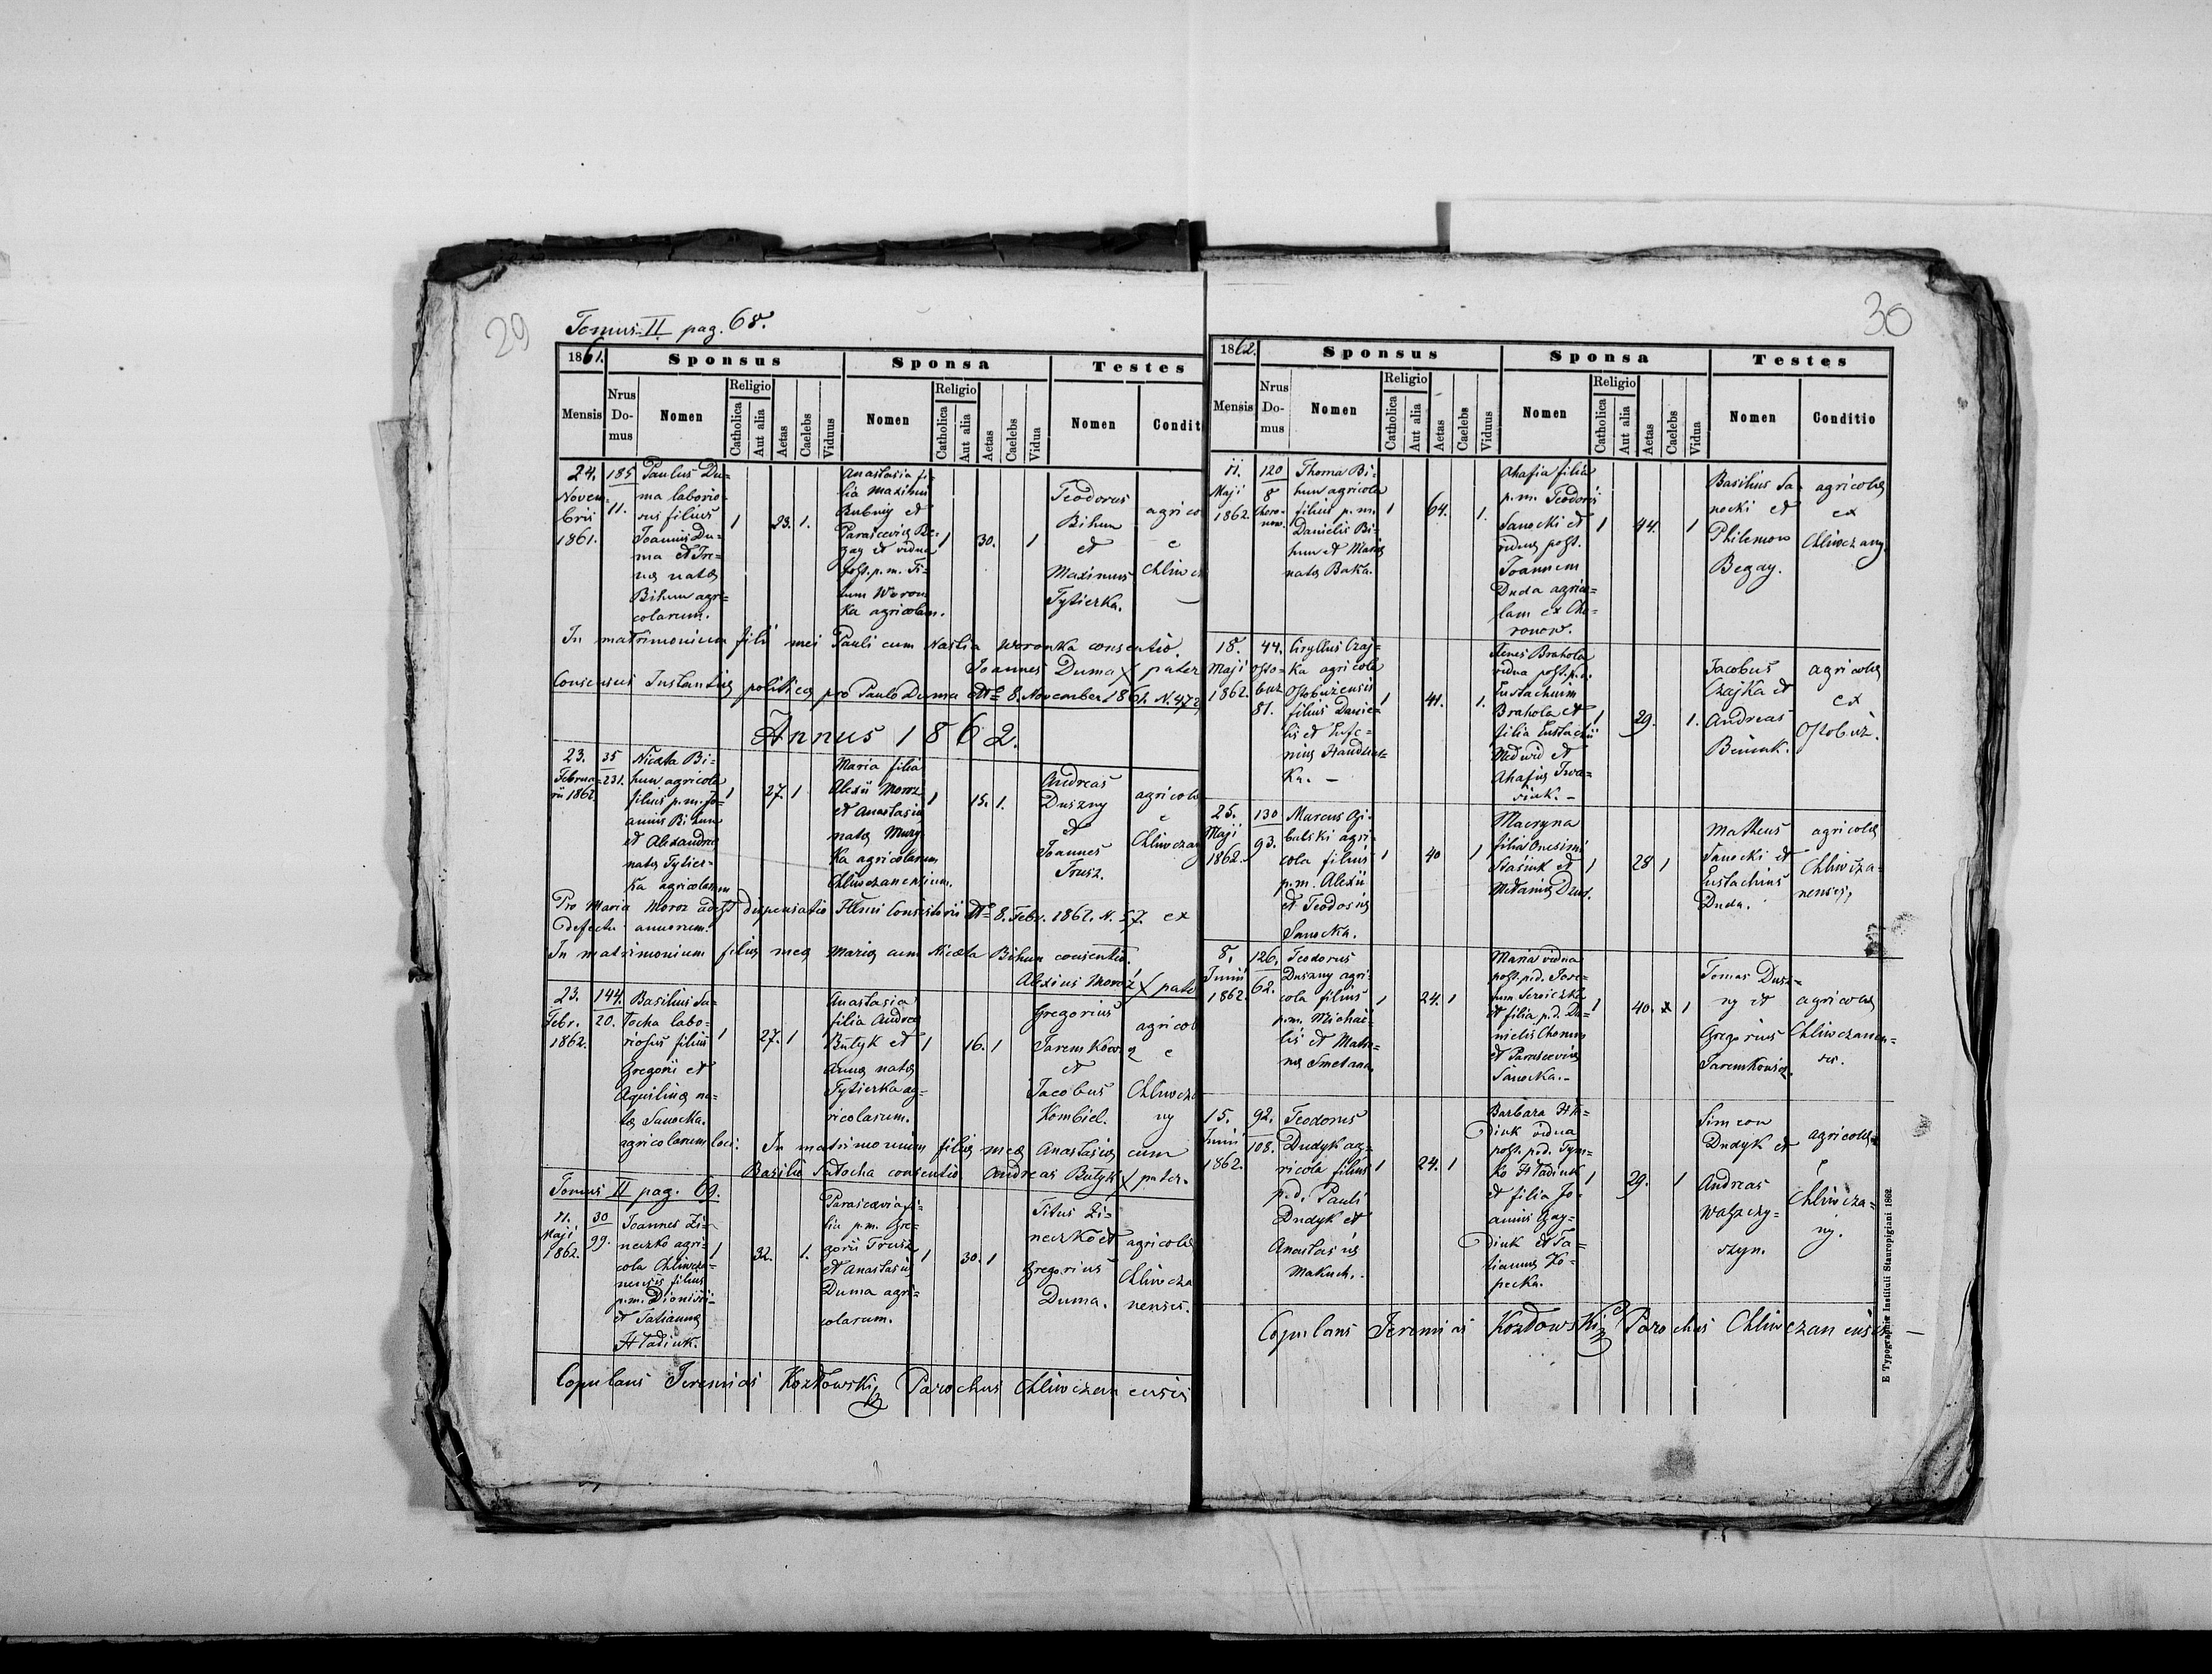 29
Tomus II pag. 68.
1861.
Sponsus
Sponsa
Testes
Mensis
Nrus Domus
Nomen
Religio
Catholica
Aut alia
Aetas
Caelebs
Viduus
Nomen
Religio
Catholica
Aut alia
Aetas
Caelebs
Vidua
Nomen
Condit
24.
Novem-
bris
1861.
185
11.
Paulus Du-
ma laborio
sus filius
Joannis Du-
ma et Ire-
næ natæ
Bihun agri-
colarum.
1
23.
1.
Anastasia fi-
lia Maximi
et
Parascevia Be-
gay et vidua
post. p. m. Ti-
tum Woron
ka agricolam.
1
30.
1
Teodorus
Bihun
et
Maximus
Tytierka.
agrico
e
Chliwcz
In matrimonium filii mei Pauli cum Nastia Woronka consentio.
Joannes Duma X pater
Consensus Instantiæ politicæ pro Paulo Duma dtto 8. November 1861. N. 472
Annus 1862.
23.
Februa-
rii 1862.
35
231.
Nicæta Bi-
hun agricola
filius p. m. Jo-
annis Bihun
et Alexandræ
natæ Tytier-
ka agricolarum
1
27.
1
Maria filia
Alexii Moroz
et Anastasiæ
natæ Muzy
ka agricolarum
Chliwczanensium.
1
15.
1.
Andreas
Duszny
et
Joannes
Trusz.
agricolæ
e
Chliwczan
Pro Maria Moroz adest dispensatio Illmi Consistorii dtto 8. Febr. 1862. N. 57. ex
defectu annorum.
In matrimonium filiæ meæ Mariæ cum Nicæta Bihun consentio.
Alexius Moroz X pate
23.
Febr.
1862.
144.
20.
Basilius Sa-
tocha labo-
riosus filius
Gregorii et
Aquilinæ na-
tæ Sanocka.
agricolarum loci.
1
27.
1
Anastasia
filia Andreæ
Butyk et
Annæ natæ
Tytierka ag-
ricolarum.
1
16.
1
Gregorius
Jaremkowicz
et
Jacobus
Kombiel.
agricol
e
Chliwcza
ny
In matrimonium filiæ meæ Anastasiæ cum
Basilio Satocha consentio. Andreas Butyk X pater.
Tomus II pag. 69.
11.
Maji
1862.
30
99.
Joannes Zi-
neczko agri-
cola Chliwcza-
nensis filius
p. m. Dionisii
et Tatiannæ
Hładiuk.
1
32.
1.
Parascevia fi-
lia p. m. Gre-
gorii Trusz
et Anastasiæ
Duma agri-
colarum.
1
30.
1
Titus Zi-
neczko et
Gregorius
Duma.
agricolæ
Chliwcza
nenses.
Copulans Jeremias Kozłowski Parochus Chliwczanensis
30
1862.
Sponsus
Sponsa
Testes
Mensis
Nrus Domus
Nomen
Religio
Catholica
Aut alia
Aetas
Caelebs
Viduus
Nomen
Religio
Catholica
Aut alia
Aetas
Caelebs
Vidua
Nomen
Conditio
11.
Maji
1862.
120
8
Choro-
now.
Thoma Bi-
hun agricola
filius p. m.
Danielis Bi-
hun et Mariæ
natæ Baka.
1
64.
1.
Ahafia filia
p. m. Teodori
Sanocki et
vidua post.
Joannem
Duda agrico-
lam ex Cho-
ronow.
1
44.
1
Basilius Sa-
nocki et
Philemon
Begay.
agricolæ
ex
Chliwczany.
18.
Maji
1862.
44.
Osto-
buz
81.
Cyryllus Czaj-
ka agricola
Ostobuzensis
filius Danie-
lis et Eufe-
niæ
Ka. -
1
41.
1.
Xenes Brahola
vidua post. p. d.
Eustachium
Brahola et
filia Eustachii
Nedwid et
Ahafiæ Iwa-
siuk. -
1
29.
1.
Jacobus
Czajka et
Andreas
agricolæ
ex
Ostobuz.
25.
Maji
1862.
130
93.
Marcus Gi-
balski agri-
cola filius
p. m. Alexii
et Teodosiæ
Sanocka.
1
40
1
Macryna
filia Onesimi
Stasiuk et
Melaniæ Dzus.
1
28
1
Matheus
Sanocki et
Eustachius
Duda.
agricolæ
Chliwcza-
nenses,
8.
Junii
1862.
126.
62.
Teodorus
Duszny agri-
cola filius
p. m. Michae-
lis et Matro-
næ Smetana.
1
24.
1
Maria vidua
post. p. d. Tere-
tum
et filia p. d. Da-
nielis Chomyn
et Parasceviæ
Sanocka. -
1
40.
x
1
Tomas Dusz-
ny et
Gregorius
Jaremkowicz.
agricolæ
Chliwczanen-
ses.
15.
Junii
1862.
92.
108.
Teodorus
Dudyk ag-
ricola filius
p. d. Pauli
Dudyk et
Anastasiæ
Makuch.
1
24.
1
Barbara Hła-
diuk vidua
post. p. d. Tym-
ko Hładiuk
et filia Jo-
annis Hay-
diuk et Ta-
tiannæ Ko-
pecka.
1
29.
1
Simeon
Dudyk et
Andreas
Waszczy-
szyn.
agricolæ
e
Chliwcza-
ny.
Copulans Jeremias Kozłowski Parochus Chliwczanensis —
E Typographia Instituti Stauropigiani 1862